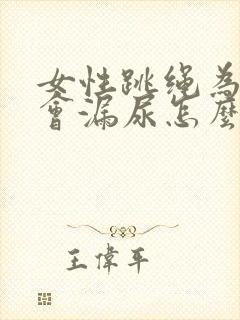 女性跳绳為
會漏尿怎麼
王偉平